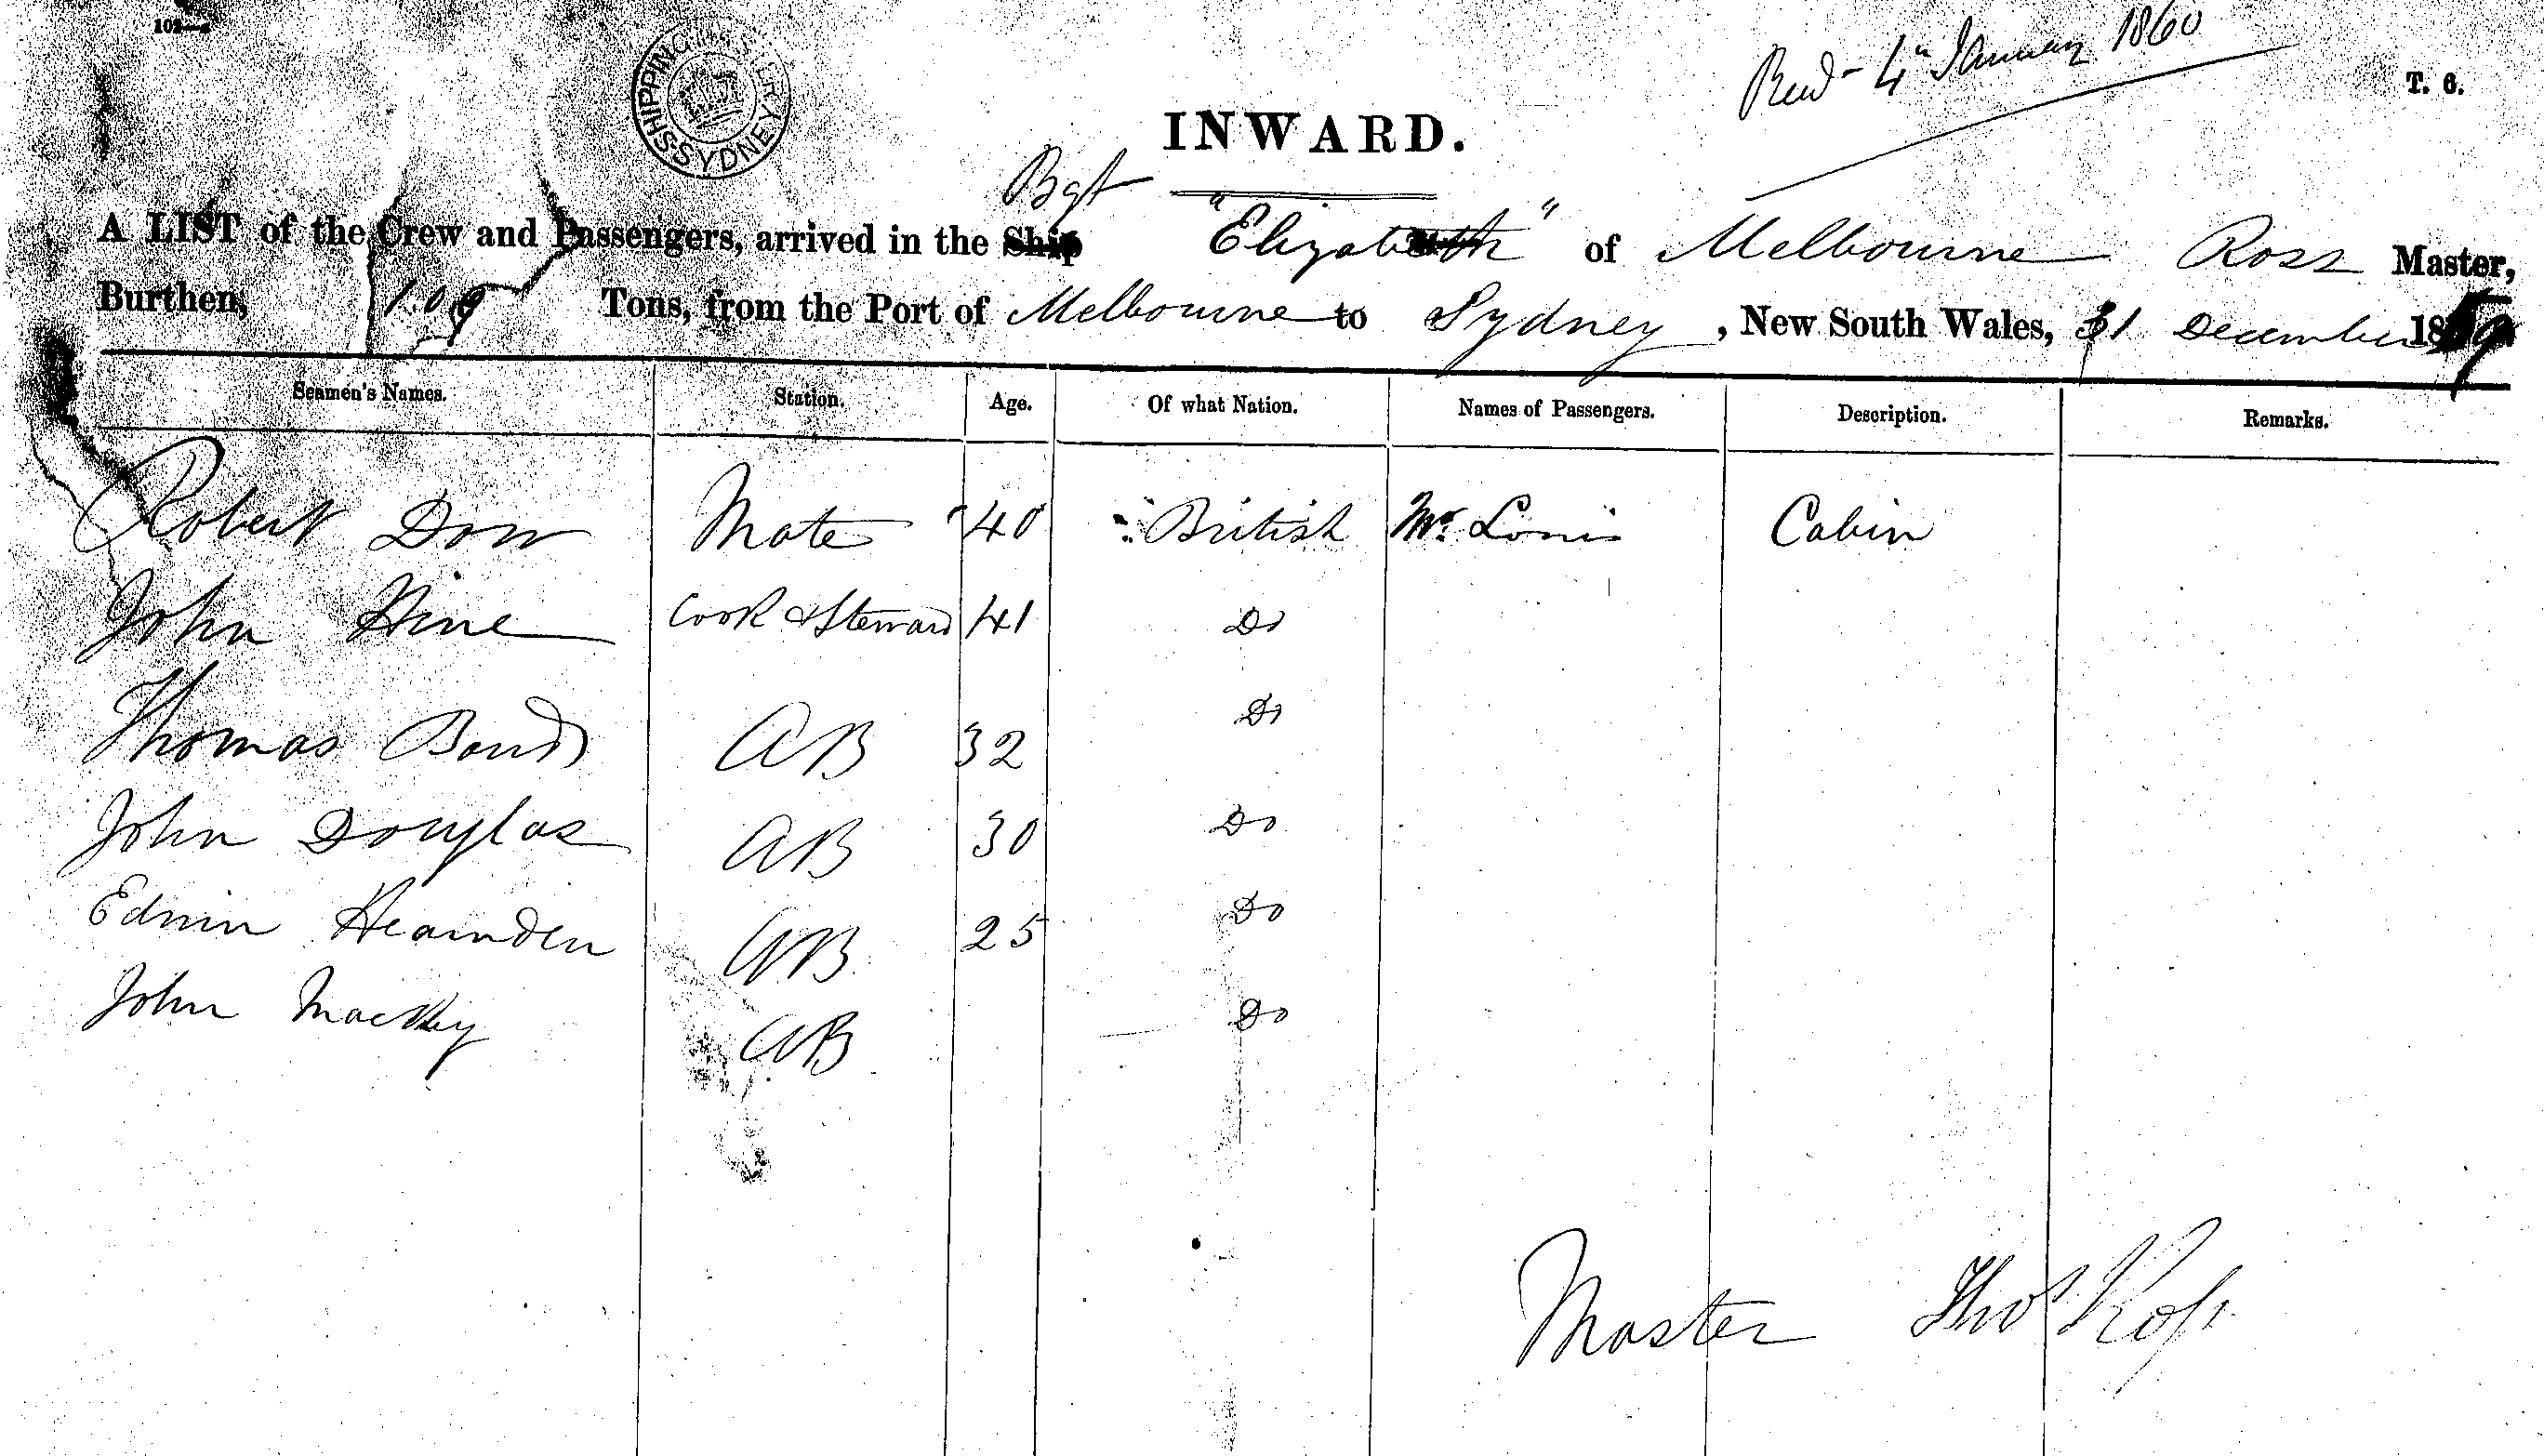 SHIPPING SYDNEY
Recd - 4th January 1860
T. 6.
INWARD.
Bgt
A LIST of the Crew and Passengers, arrived in the Ship "Elizabeth" of Melbourne Ross Master,
Burthen, 109 Tons, from the Port of Melbourne to Sydney, New South Wales, 31 December 1859
Seamen's Names. Station. Age. Of what Nation. Names of Passengers. Description. Remarks.
Robert Dow Mate 40 British Mr. Cabin
John Hine Cook & Steward 41 Do
Thomas Bond AB 32 Do
John Douglas AB 30 Do
Edwin Hearnden AB 25 Do
John AB Do
Master Thos Ross